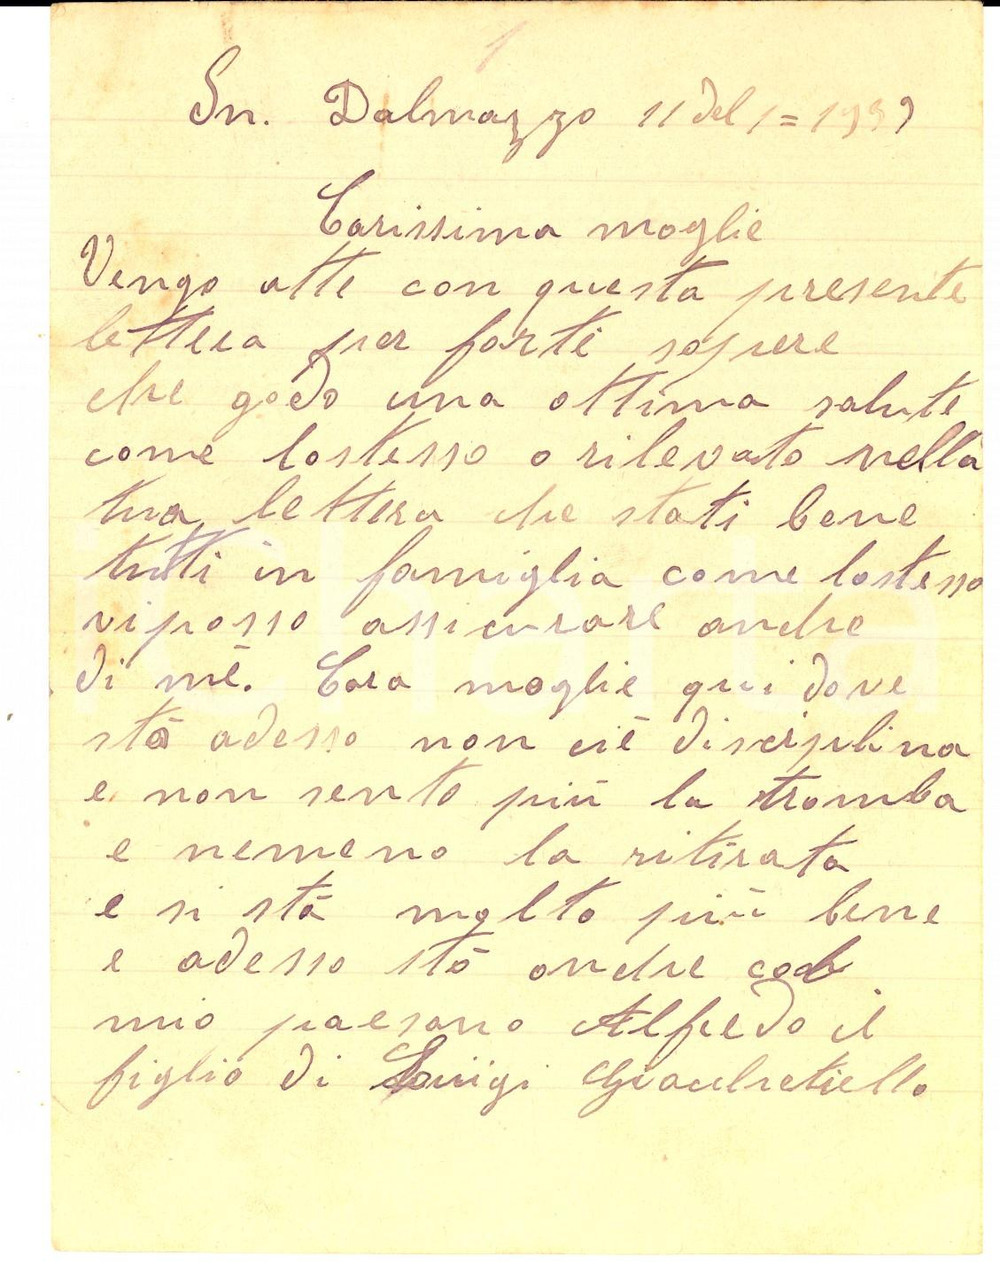 Sn. Dalmazzo 11 del 1 = 1939
Carissima moglie
Vengo atte con questa presente
lettera per farti sapere
che godo una ottima salute
come lostesso o rilevato nella
tua lettera che stati bene
tutti in famiglia come lostesso
viposso assicurare anche
di mè. Cara moglie qui dove
stò adesso non ciè discriplina
e non sento più la tromba
e nemeno la ritirata
e si stà molto più bene
e adesso stò anche col
mio paesano Alfredo il
figlio di Luigi